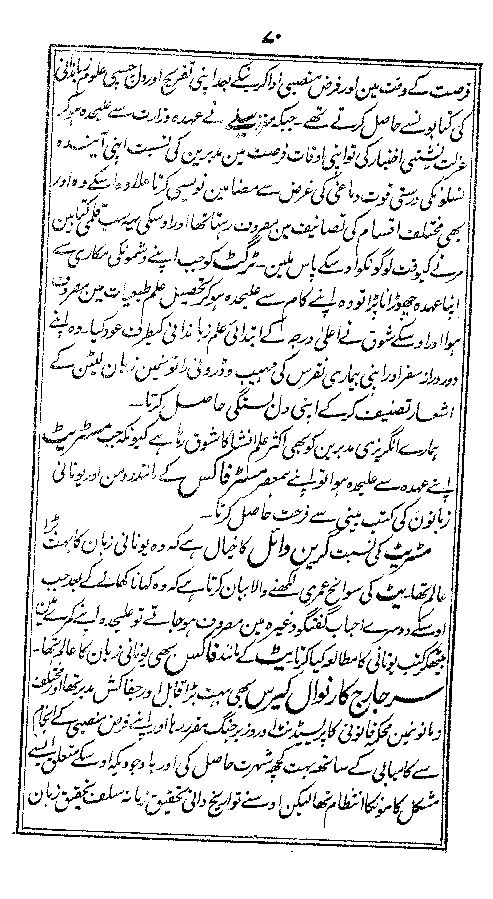 ۷۰
فرصت کے وقت مین اور فرض منصبی ادا کرنیکے بعد اپنی تفریح اور دل چسپی علوم زباندانی
کی کتابونسے حاصل کرتے تھے۔ جبکہ نے عہدہ وزارت سے علیحدہ ہوکر
عزلت نشینی اختیار کی تو اپنی اوقات فرصت مین مدبرین کی نسبت اپنی آیندہ
نسلونکی درستی قوت دماغی کی غرض سے مضامین نویسی کرتا علاوہ اسکے وہ اور
بھی مختلف اقسام کی تصانیف مین مصروف رہتا تھا اور اوسکی یہ سب قلمی کتابین
مرنے کیوقت لوگونکو اوسکے پاس ملین۔ ٹرگٹ کو جب اپنے دشمونکی مکاری سے
اپنا عہدہ چھوڑنا پڑا تو وہ اپنے کام سے علیحدہ ہوکر تحصیل علم طبعیات مین مصروف
ہوا اور اوسکے شوق نے اعلی درجہ کے ابتدائی علم زباندانی کیطرف عود کیا۔ وہ اپنے
دور دراز سفر اور اپنی بیماری نقرس کی مہیب و ڈرونی راتونمین زبان لیٹن کے
اشعار تصنیف کرکے اپنی دل بستگی حاصل کرتا۔
ہمارے انگریزی مدبرین کو بھی اکثر علم انشا کا شوق رہا ہے کیونکہ جب مسٹر پٹ
اپنے عہدہ سے علیحدہ ہوا تو اپنے ہمعصر مسٹر فاکس کے مانند رومن اور یونانی
زبانون کی کتب بینی سے فرحت حاصل کرتا۔
مسٹر پٹ کی نسبت گرین وائل کا خیال ہے کہ وہ یونانی زبان کا بہت بڑا
عالم تھا۔ پٹ کی سوانح عمری لکھنے والا بیان کرتا ہے کہ وہ کھانا کھانے کے بعد جب
اوسکے دوسرے احباب گفتگو وغیرہ مین مصروف ہوجاتے تو علیحدہ اپنے کمرے مین
بیٹھکر کتب یونانی کا مطالعہ کیا کرتا۔ پٹ کے مانند فاکس بھی یونانی زبان کا عالم تھا۔
سر جارج کارنوال لیوس بھی بہت بڑا قابل اور جفاکش مدبر تھا اور مختلف
زمانونمین محکمہ قانونی کا پریسیڈنٹ اور وزیر جنگ مقرر رہا اور اپنے فرض منصبی کے انجام
سے کامیابی کے ساتھ بہت کچھ شہرت حاصل کی اور باوجودیکہ اوسکے متعلق ایسے
مشکل کامونکا انتظام تھا لیکن اوسنے تواریخ دانی تحقیق زمانہ سلف تحقیق زبان